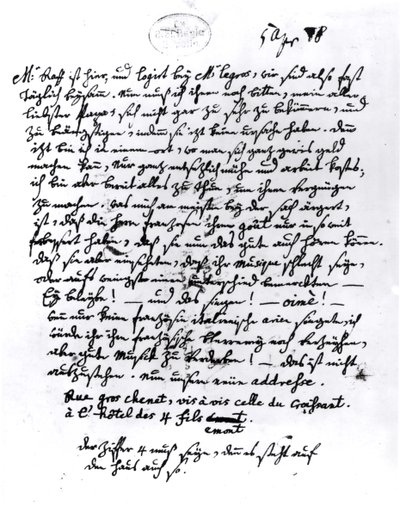 5 Apr 78
Mr: Raff ist hier, und logirt bey Mr: Legros, wir sind also fast
täglich beysamm. Nun muß ich ihnen noch bitten, mein aller
liebster Papa, sich nicht gar zu sehr zu bekümern, und
zu beängstigen, indemm sie izt keine ursache haben. denn
izt bin ich in einem ort, wo man sich ganz gewis geld
machen kann, Nur ganz entsezlich mühe und arbeit kostets,
ich bin aber bereit alles zu thun, um ihnen vergnügen
zu machen. was mich am meisten bey der sach ärgert,
ist, daß die herrn franzosen ihren goût nur in so weit
verbessert haben, daß sie nun das gute auch hören können.
daß sie aber einsheten, daß ihr Musique schlecht seye,
oder aufs wenigst einen unterschied bemerckten —
Ey beleybe! — und das singen! — oimè! —
wenn nur keine französin italienische arien singete, ich
würde ihr ihre französische Plererrey noch verzeyhen,
aber gute Musick zu verderben! — das ist nicht
auszustehen. Nun unsere neüe addresse.
Rue gros chenet, vis à vis celle du Croissant.
à l'hôtel des 4 fils
emont
der Ziffer 4 muß seyn, denn es steht auf
dem haus auch so.